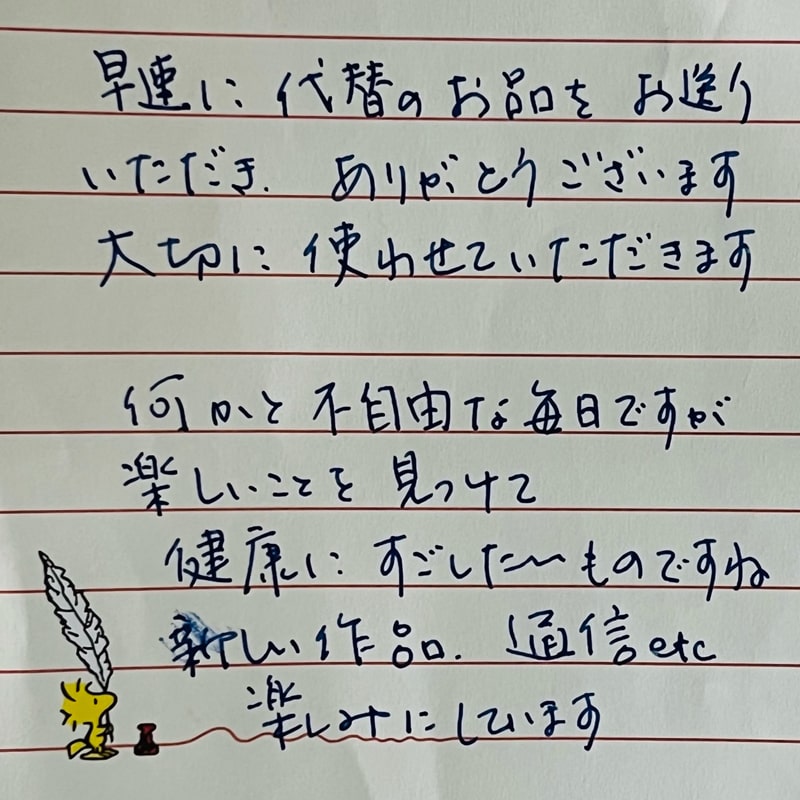 早速に 代替の お品を お送り
いただき. ありがとうございます
大切に 使わせていただきます
何かと 不自由な毎日ですが
楽しいことを 見つけて
健康に すごしたいものですね
新しい作品. 通信etc
楽しみにしています